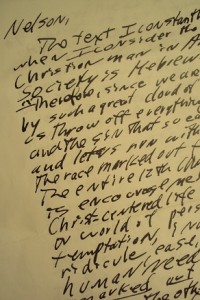 Nelson,
The text I constant
when I consider the
Christian man in A
society is Hebrew
Therefore, since we are
by such a great cloud of
us throw off everything
and the sin that so ea
and let us run with
the race marked out f
The entire 12th Cha
is encourageme
Christ-centered life
a world of pois
temptation,
ridicule, ease,
human need
marked out
the othe